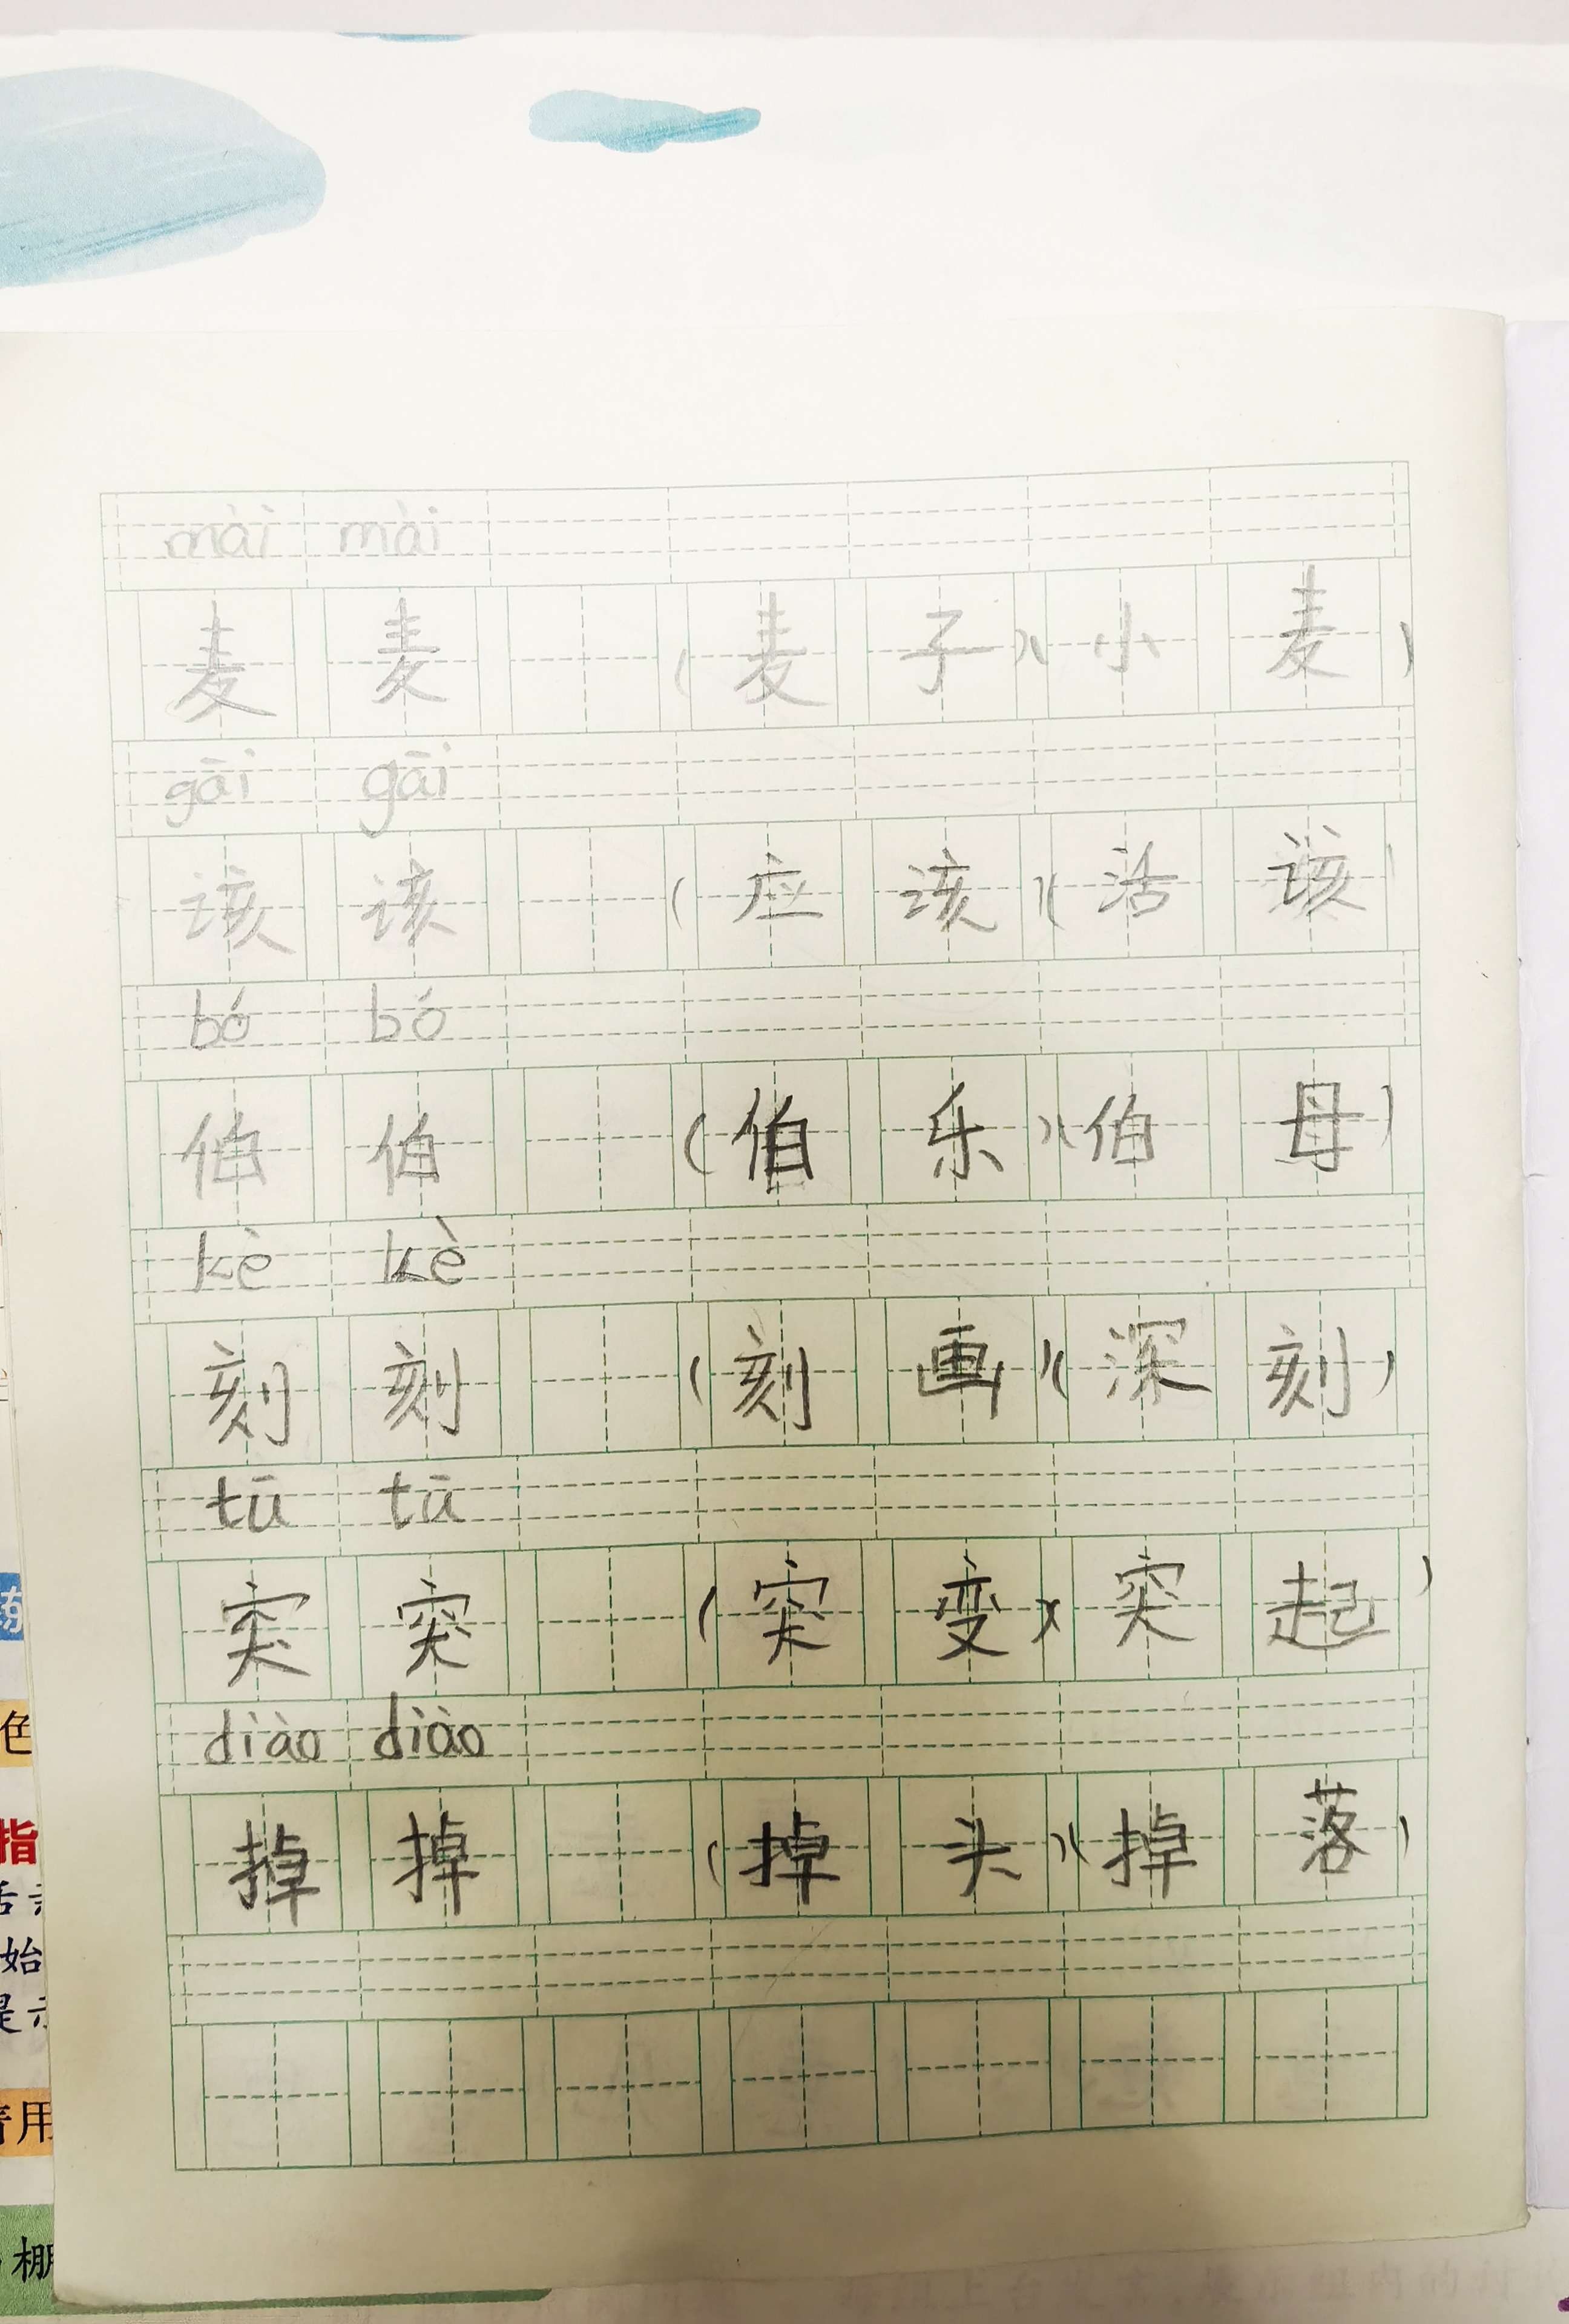 mài mài
麦 麦 (麦子)(小麦)
gāi gāi
该 该 (应该)(活该)
bó bó
伯 伯 (伯乐)(伯母)
kè kè
刻 刻 (刻画)(深刻)
tū tū
突 突 (突变)(突起)
diào diào
掉 掉 (掉头)(掉落)
色
指
始
是
用
棚